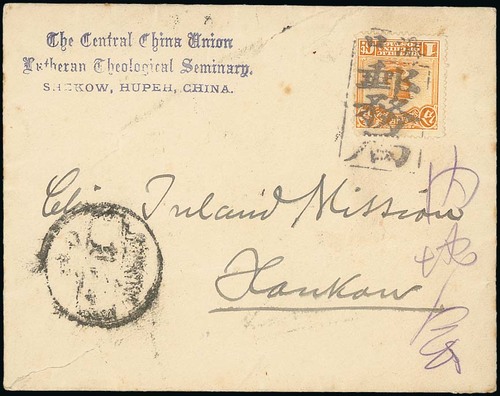 The Central China Union
Lutheran Theological Seminary.
SHEKOW, HUPEH, CHINA.
郵務局
China Inland Mission
Hankow
内地会